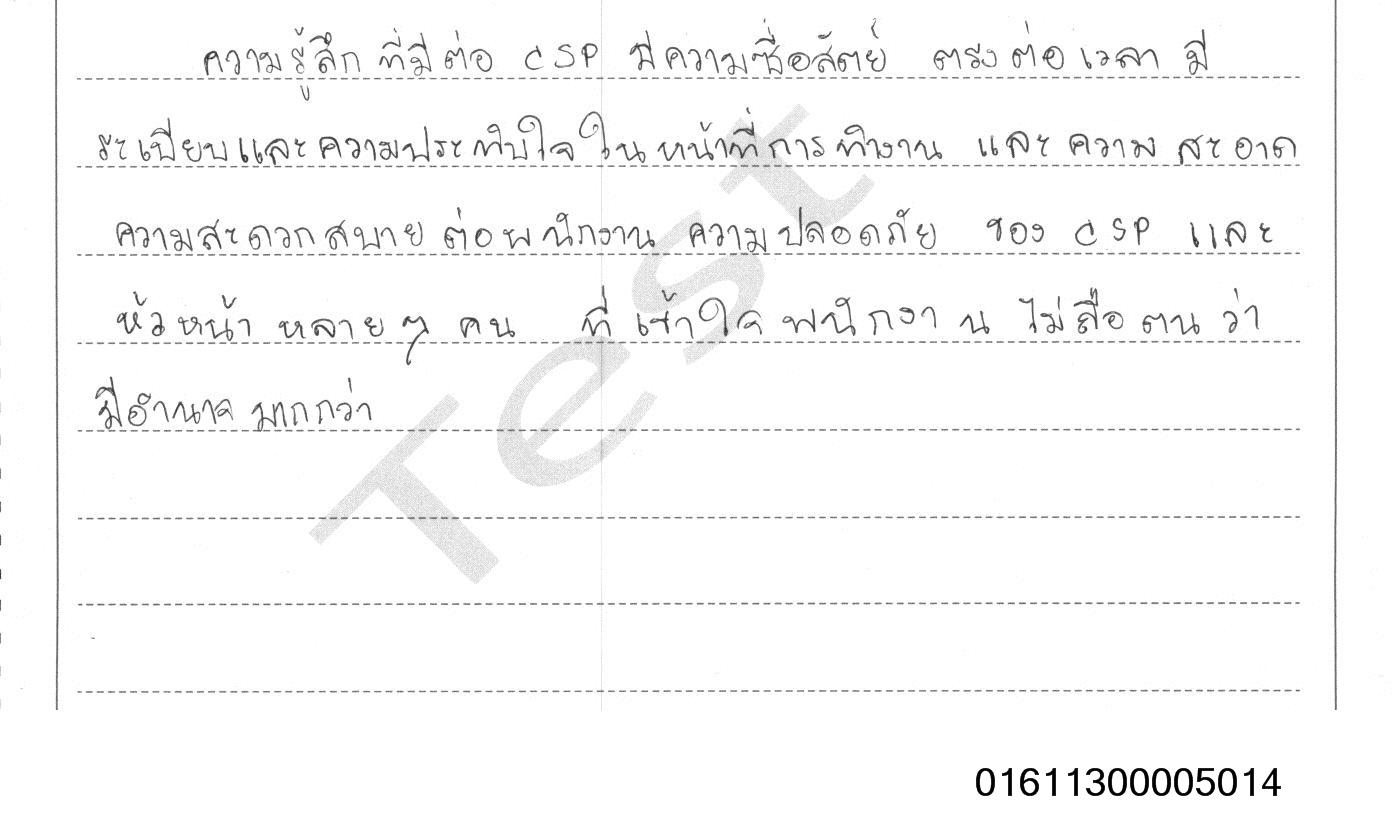 ความรู้สึก ที่มีต่อ CSP มีความซื่อสัตย์ ตรงต่อเวลา มี
ระเบียบและความประทับใจในหน้าที่การทำงาน และความสะอาด
ความสะดวกสบายต่อพนักงาน ความปลอดภัย ของ CSP และ
หัวหน้าหลายๆ คน ที่เข้าใจพนักงาน ไม่ถือตนว่า
มีอำนาจมากกว่า
Test
01611300005014